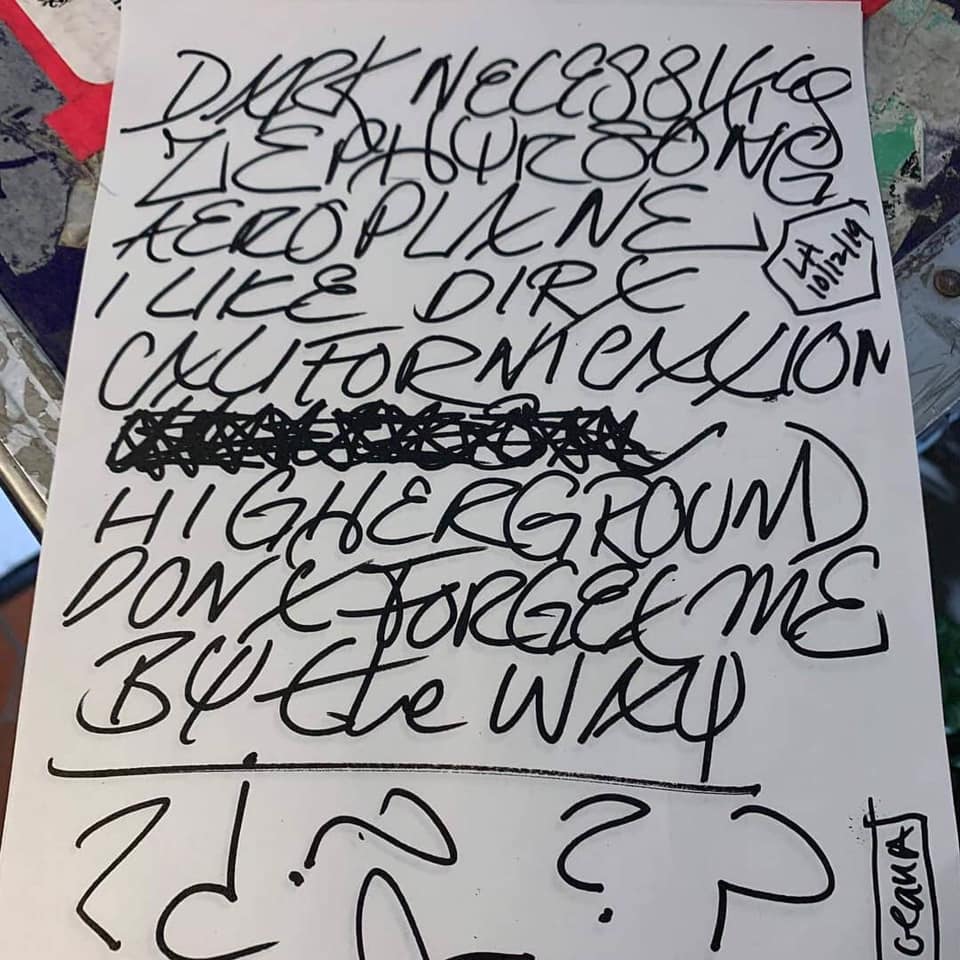 DARK NECESSITIES
ZEPHYR SONG
AEROPLANE
I LIKE DIRT
CALIFORNICATION
HIGHERGROUND
DON'T FORGET ME
BY the WAY
LH
10/12/19
? ?